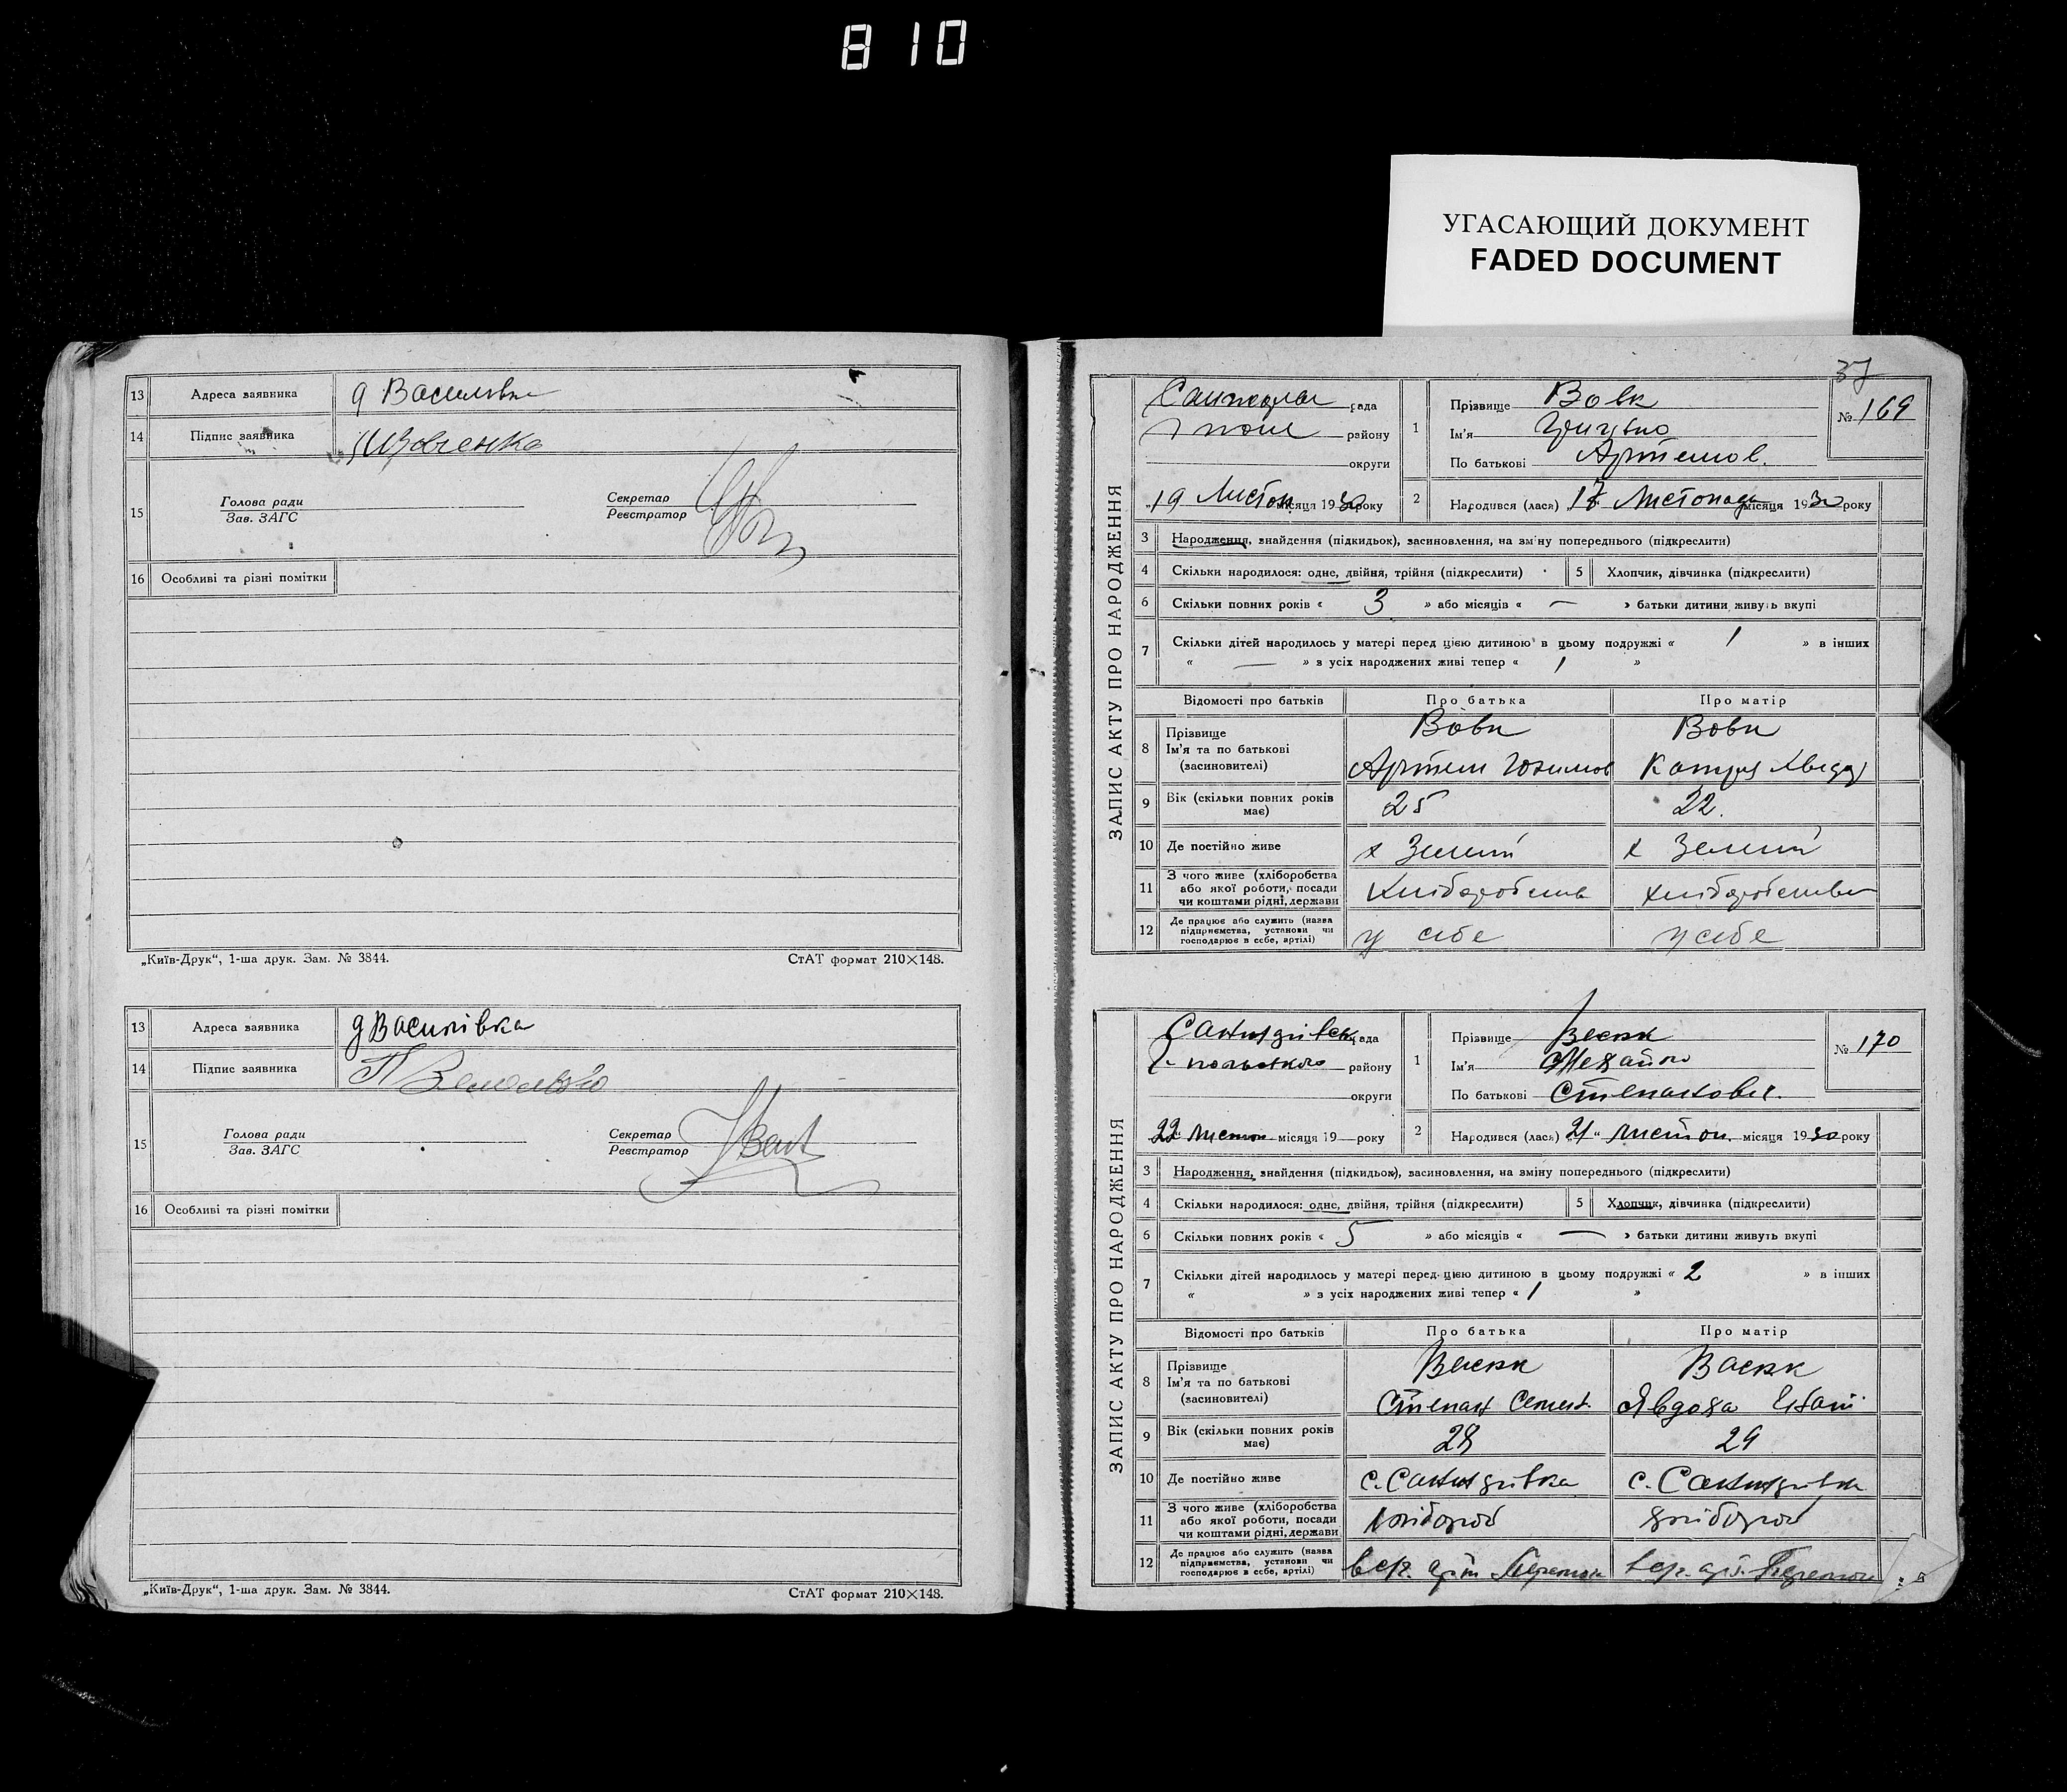 810
УГАСАЮЩИЙ ДОКУМЕНТ
FADED DOCUMENT
13 Адреса заявника д Василівка
14 Підпис заявника Шовченко
15 Голова ради
Зав. ЗАГС
Секретар
Реєстратор
16 Особливі та різні помітки
„Київ-Друк“, 1-ша друк. Зам. № 3844. СтАТ формат 210×148.
13 Адреса заявника д Василівка
14 Підпис заявника
15 Голова ради
Зав. ЗАГС
Секретар
Реєстратор
16 Особливі та різні помітки
„Київ-Друк“, 1-ша друк. Зам. № 3844. СтАТ формат 210×148.
37
ЗАПИС АКТУ ПРО НАРОДЖЕННЯ
рада
району
округи
„19 Листоп. місяця 1930 року
1 Прізвище Вовк
Ім'я
По батькові Артемов.
№ 169
2 Народився (лася) „17 Листопада місяця 1930 року
3 Народження, знайдення (підкидьок), засиновлення, на зміну попереднього (підкреслити)
4 Скільки народилося: одне, двійня, трійня (підкреслити) 5 Хлопчик, дівчинка (підкреслити)
6 Скільки повних років « 3 » або місяців « — » батьки дитини живуть вкупі
7 Скільки дітей народилось у матері перед цією дитиною в цьому подружжі « 1 » в інших
« — » з усіх народжених живі тепер « 1 »
Відомості про батьків Про батька Про матір
8 Прізвище
Ім'я та по батькові
(засиновителі)
Вовк Вовк
Артем Юхимов
9 Вік (скільки повних років має) 25 22.
10 Де постійно живе х Зелений х Зелений
11 З чого живе (хліборобства або якої роботи, посади чи коштами рідні, держави Хліборобств хліборобства
12 Де працює або служить (назва підприємства, установи чи господарює в себе, артілі) у себе у себе
ЗАПИС АКТУ ПРО НАРОДЖЕННЯ
рада
району
округи
22 листоп місяця 19 року
1 Прізвище
Ім'я
По батькові Степанович.
№ 170
2 Народився (лася) „21“ листоп. місяця 1930 року
3 Народження, знайдення (підкидьок), засиновлення, на зміну попереднього (підкреслити)
4 Скільки народилося: одне, двійня, трійня (підкреслити) 5 Хлопчик, дівчинка (підкреслити)
6 Скільки повних років « 5 » або місяців « — » батьки дитини живуть вкупі
7 Скільки дітей народилось у матері перед цією дитиною в цьому подружжі « 2 » в інших
« » з усіх народжених живі тепер « 1 »
Відомості про батьків Про батька Про матір
8 Прізвище
Ім'я та по батькові
(засиновителі)
Степан Семен. Явдоха
9 Вік (скільки повних років має) 28 29
10 Де постійно живе
11 З чого живе (хліборобства або якої роботи, посади чи коштами рідні, держави хлібороб хлібороб
12 Де працює або служить (назва підприємства, установи чи господарює в себе, артілі)